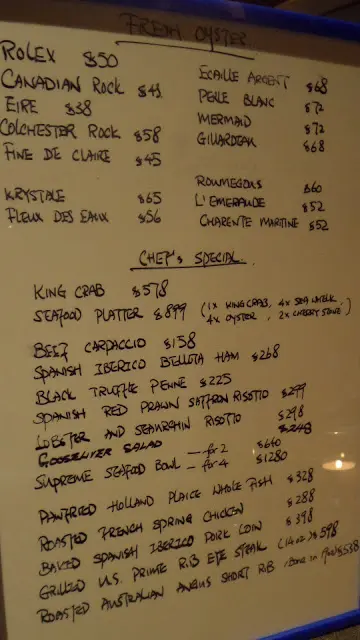 FRESH OYSTER
ROLEX $50
CANADIAN ROCK $43
EIRE $38
COLCHESTER ROCK $58
FINE DE CLAIRE $45
KRYSTALE $65
FLEUX DES EAUX $56
ECAILLE ARGENT $68
PERLE BLANC $72
MERMAID $72
GILLARDEAU $68
ROUMEGOUS $60
L'EMERAUDE $52
CHARENTE MARITINE $52
CHEF'S SPECIAL
KING CRAB $578
SEAFOOD PLATTER $899 (1X KING CRAB, 4X SEA WHELK,
4X OYSTER, 2X CHERRY STONE)
BEEF CARPACCIO $158
SPANISH IBERICO BELLOTA HAM $268
BLACK TRUFFLE PENNE $225
SPANISH RED PRAWN SAFFRON RISOTTO $299
LOBSTER AND SEAURCHIN RISOTTO $298
GOOSELIVER SALAD $248
SUPREME SEAFOOD BOWL — for 2 $640
— for 4 $1280
PANFRIED HOLLAND PLAICE WHOLE FISH $328
ROASTED FRENCH SPRING CHICKEN $288
BAKED SPANISH IBERICO PORK LOIN $398
GRILLED U.S. PRIME RIB EYE STEAK (14oz) $598
ROASTED AUSTRALIAN ANGUS SHORT RIB (Bone in $538